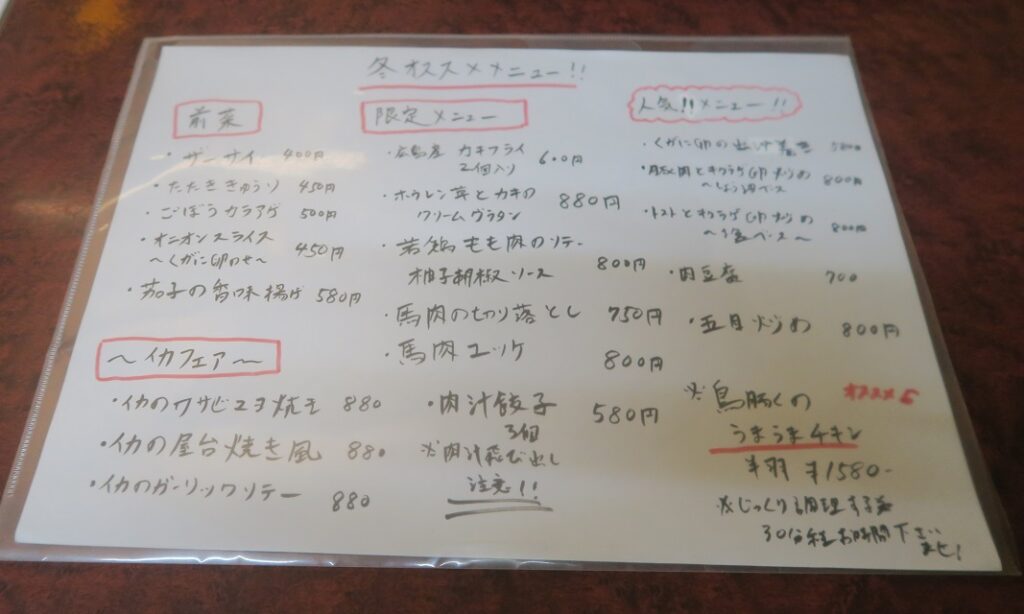 冬オススメメニュー!!
前菜
・ザーサイ 400円
・たたききゅうり 450円
・ごぼうカラアゲ 500円
・オニオンスライス
～くがに卵のせ～ 450円
・茄子の香味揚げ 580円
～イカフェア～
・イカのワサビマヨ焼き 880
・イカの屋台焼き風 880
・イカのガーリックソテー 880
限定メニュー
・広島産 カキフライ
2個入り 600円
・ホウレン草とカキの
クリームグラタン 880円
・若鶏もも肉のソテー
柚子胡椒ソース 800円
・馬肉の切り落とし 750円
・馬肉ユッケ 800円
・肉汁餃子 580円
3個
※肉汁飛び出し
注意!!
人気!!メニュー!!
・くがに卵の出汁巻き
・豚肉とキクラゲ卵炒め 800円
～しょう油ベース
・トマトとキクラゲ卵炒め
～塩ベース～ 800円
・肉豆腐 700
・五目炒め 800円
※鳥豚くの オススメ
うまうまチキン
半羽 ¥1580-
※じっくり調理する為
30分程お時間下さいませ!